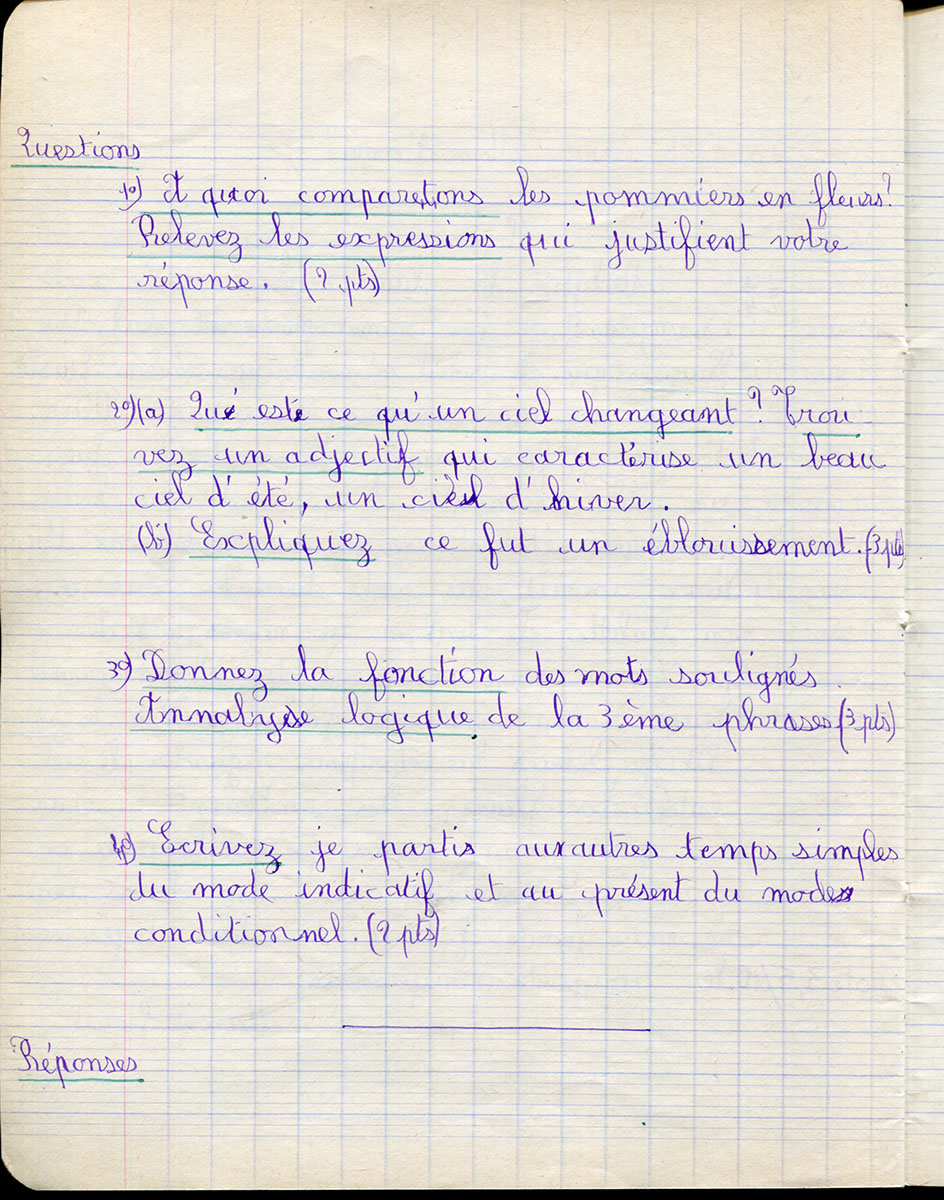 Questions
1º) A quoi comparet,ons les pommiers en fleurs?
Relevez les expressions qui justifient votre
réponse. (2 pts)
2º)(a) Qué este ce qu'un ciel changeant? Trou-
vez un adjectif qui caractérise un beau
ciel d'été, un ciel d'hiver.
(b) Expliquez ce fut un éblouissement. (3 pts)
3º) Donnez la fonction des mots soulignés.
Annalyse logique de la 3ème phrases (3 pts)
4º) Ecrivez je partis aux autres temps simples
du mode indicatif et au présent du mode
conditionnel. (2 pts)
Réponses